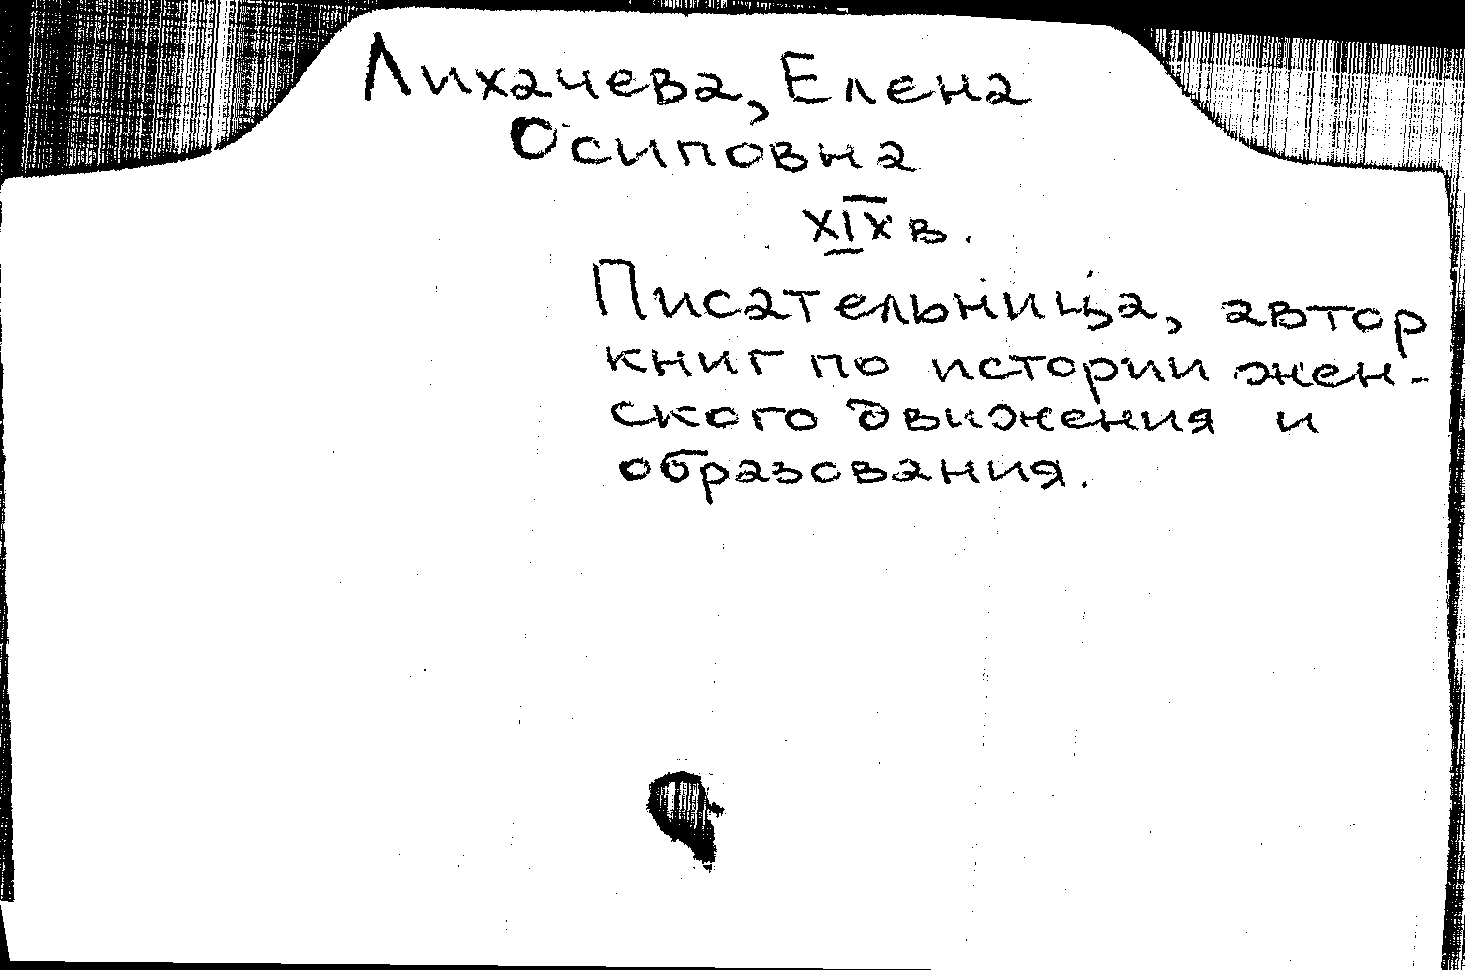 Лихачева, Елена
Осиповна
XIX в.
Писательница, автор
книг по истории жен-
ского движения и
образования.